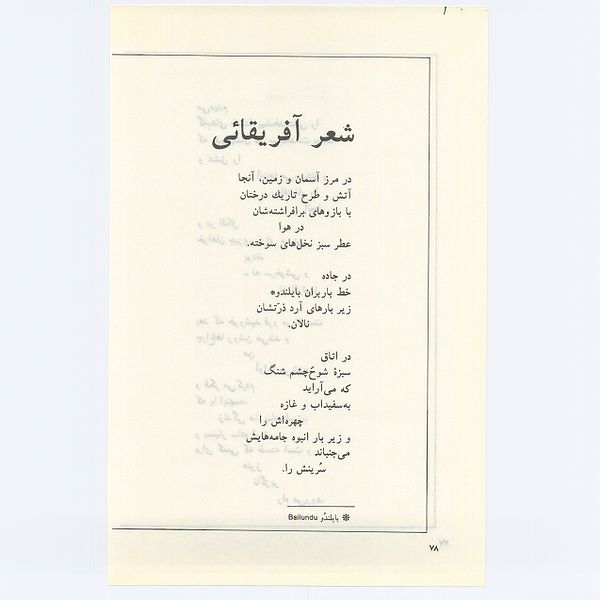 شعر آفریقائی
در مرز آسمان و زمین، آنجا
آتش و طرح تاریك درختان
با بازوهای برافراشته‌شان
در هوا
عطر سبز نخل‌های سوخته.
در جاده
خط باربران بایلندو*
زیر بارهای آرد ذرّتشان
نالان.
در اتاق
سبزهٔ شوخ‌چشم شنگ
که می‌آراید
به‌سفیداب و غازه
چهره‌اش را
و زیر بار انبوه جامه‌هایش
می‌جنباند
سُرینش را.
* بایلندُو Bailundu
۷۸